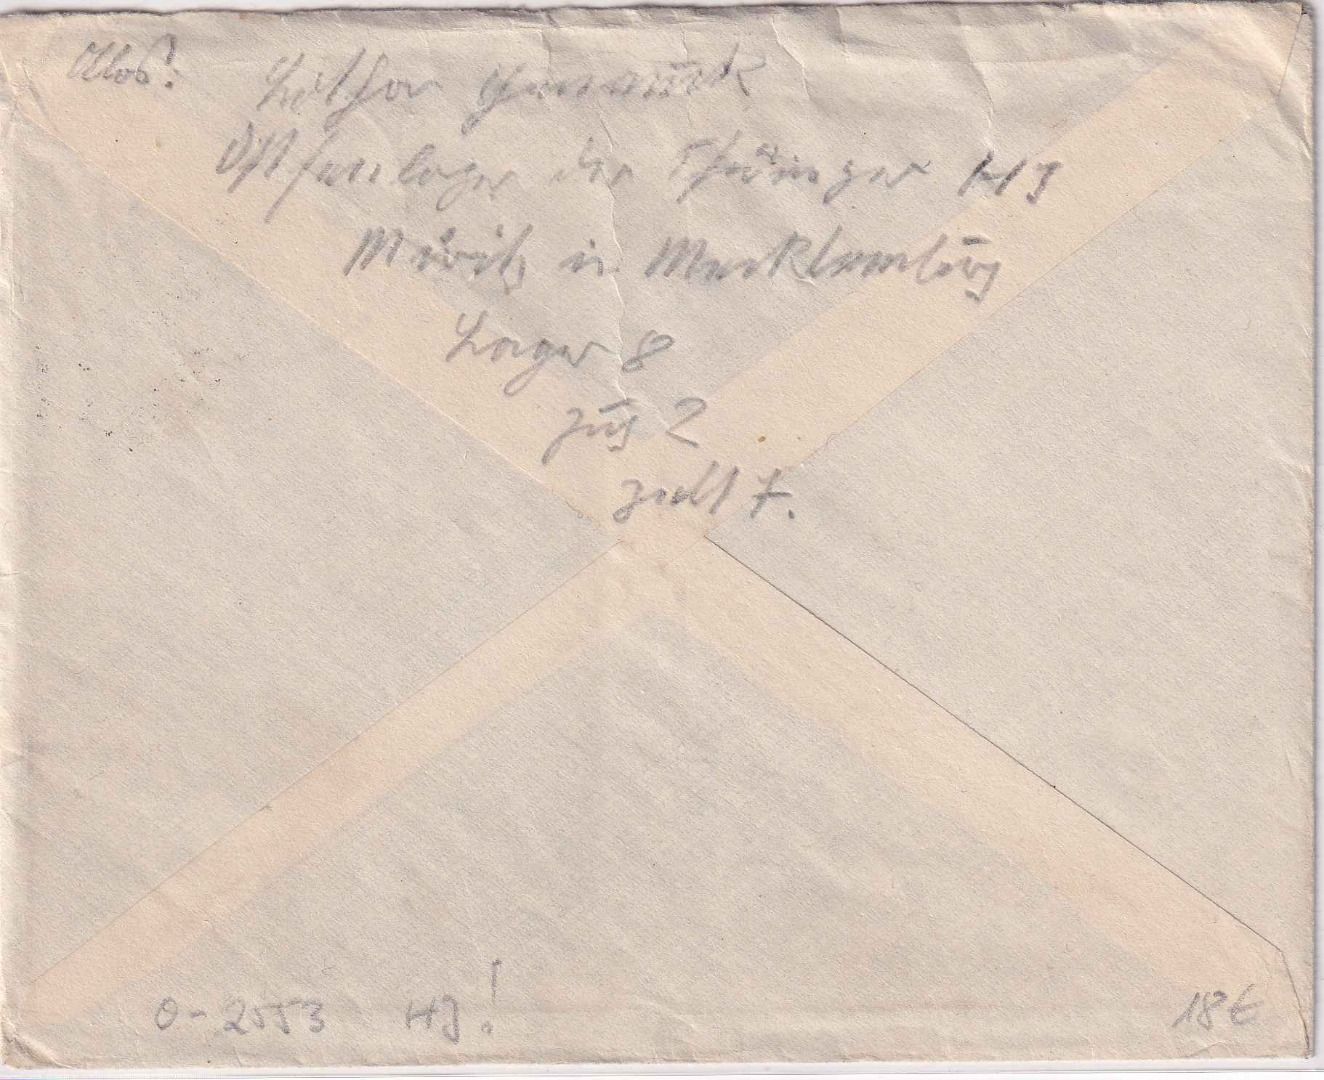 Abs:
Lothar
Ostseelager der Thüringer HJ
Müritz in Mecklemburg
Lager 8
Zug 2
Zelt 7.
O-2553 HJ! 18€